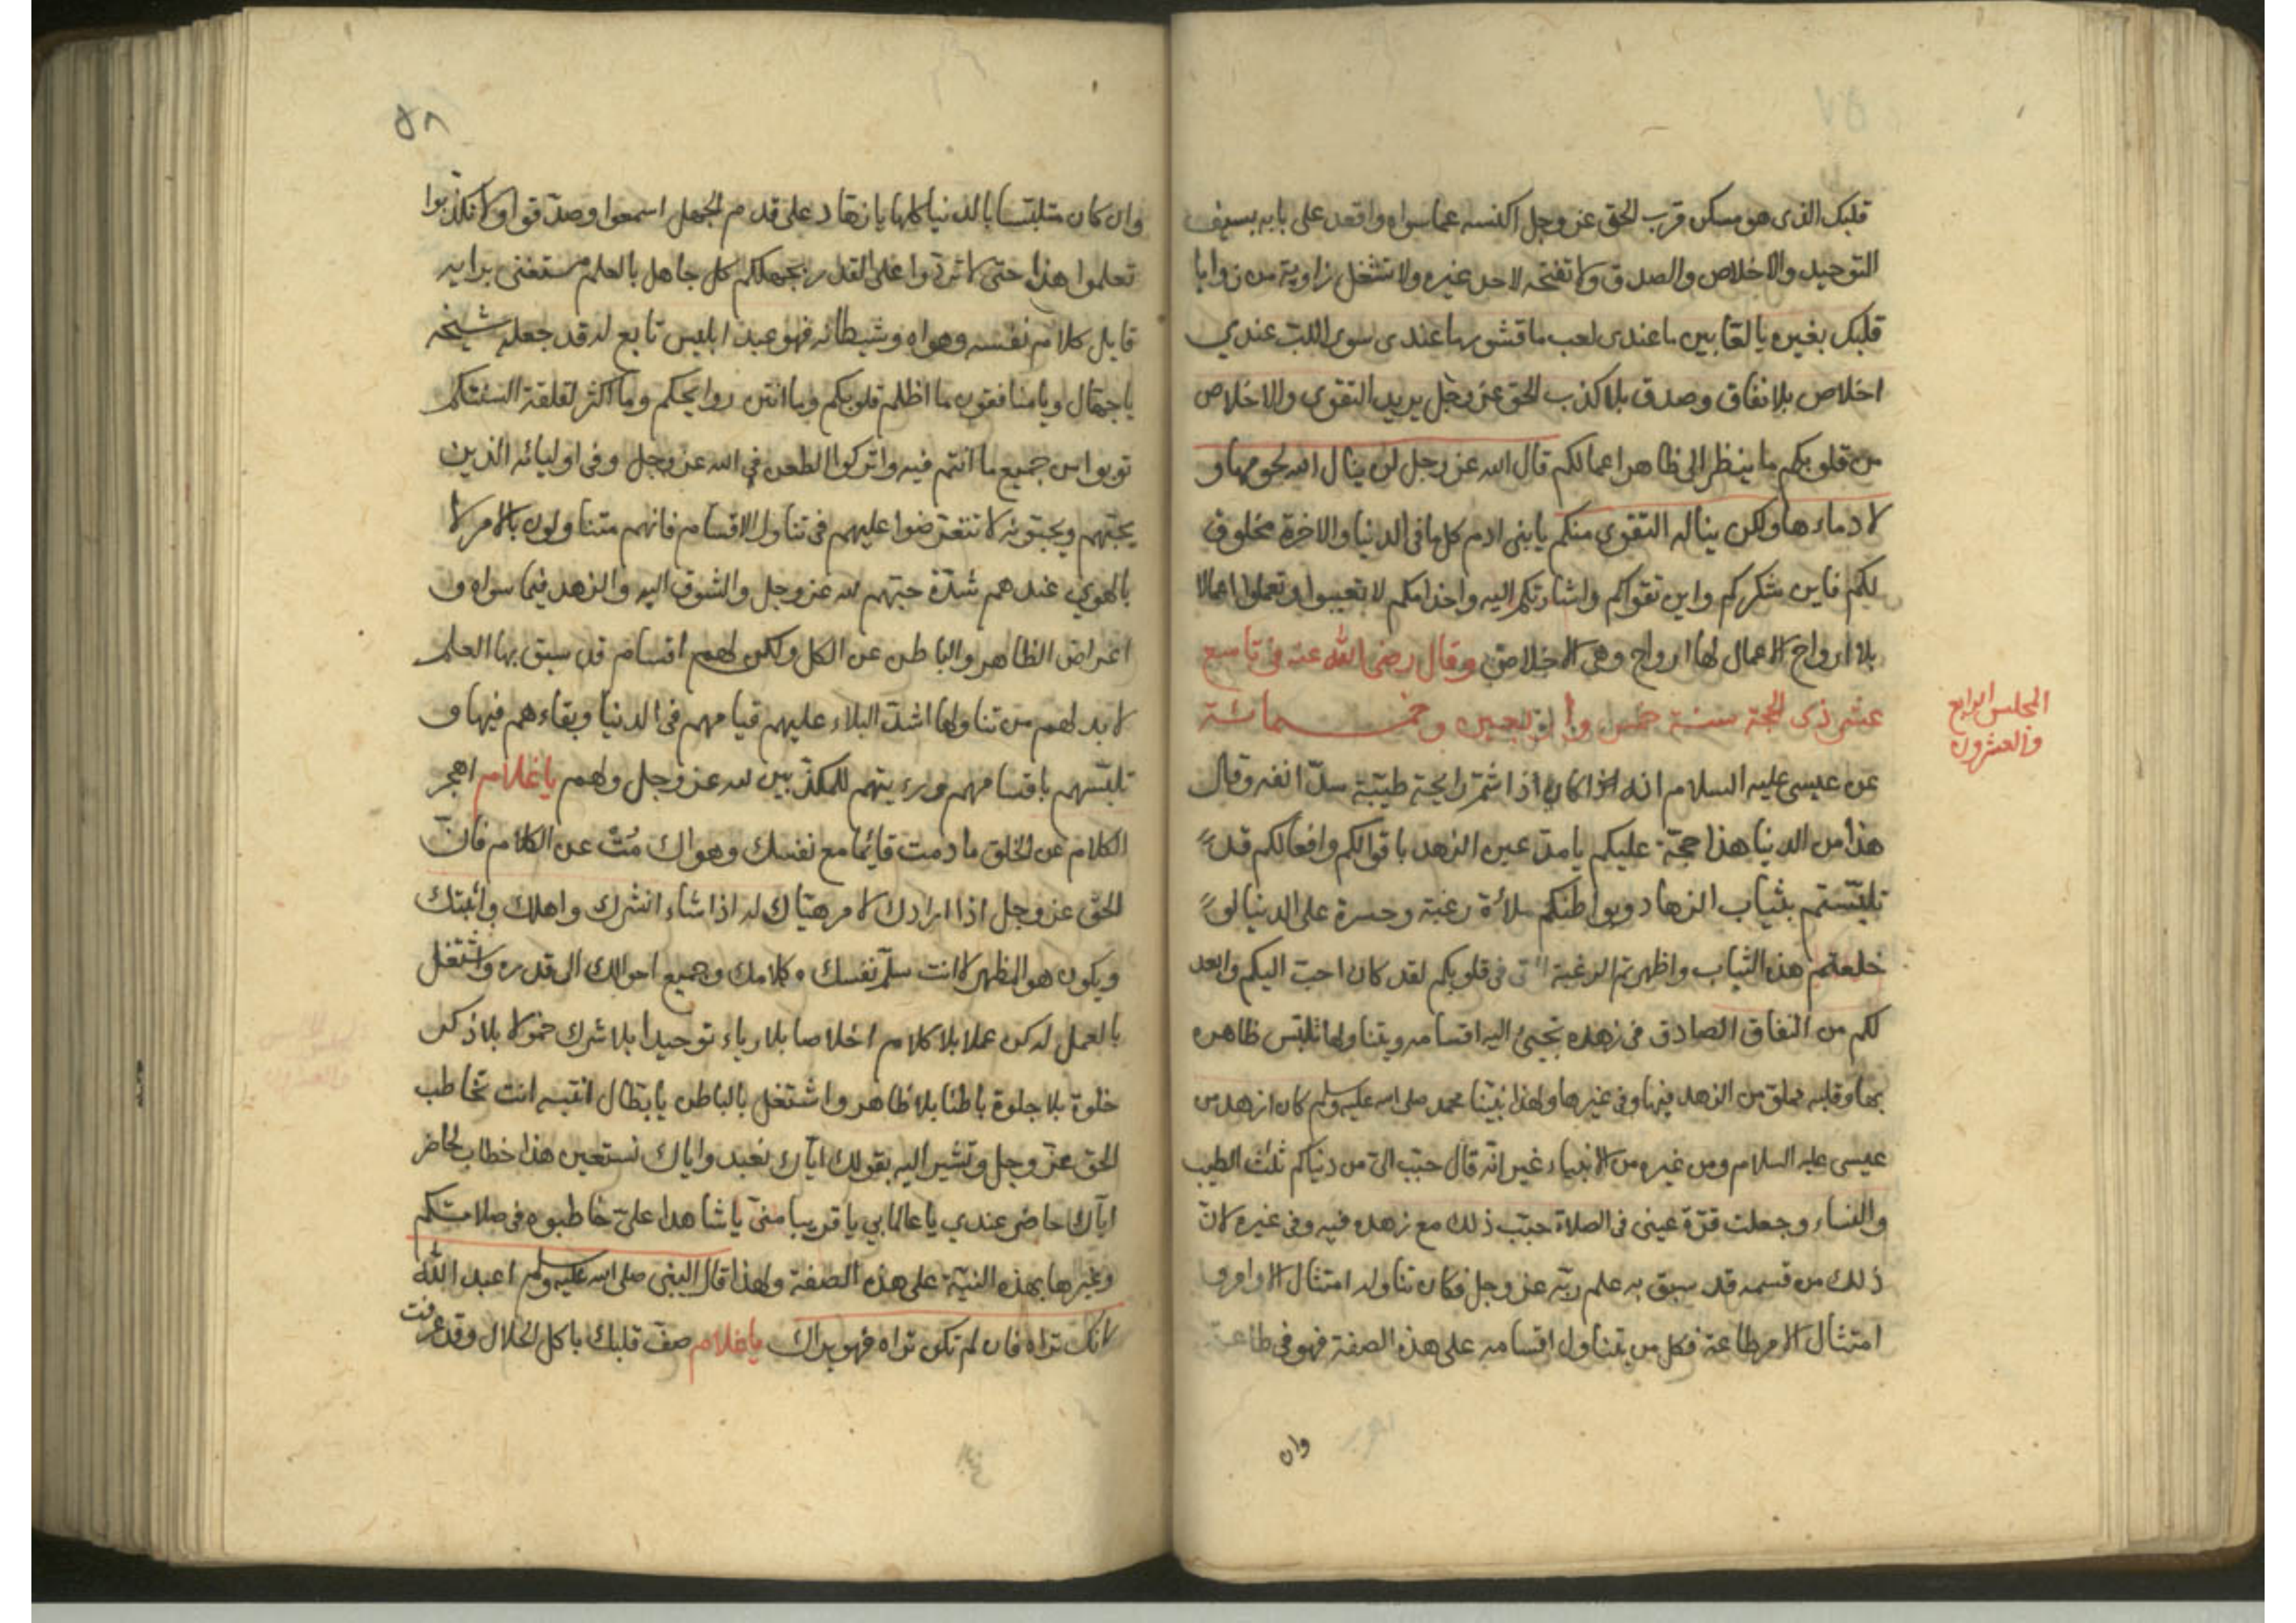 قلبك الذى هو مسكن قرب الحق عز وجل اكنسه عما سواه واقعد على بابه بسيف
التوحيد والاخلاص والصدق ولا تفتحه لاحد غيره ولا تشغل زاوية من زوايا
قلبك بغيره يا لعّابين ما عندى لعب ما قشور ما عندى سوى اللب عندي
اخلاص بلا نفاق وصدق بلا كذب الحق عز وجل يريد التقوى والاخلاص
من قلوبكم ما ينظر الى ظاهر اعمالكم قال الله عز وجل لن ينال الله لحومها و
لا دماءها ولكن يناله التقوى منكم يا بنى ادم كل ما فى الدنيا والاخرة مخلوق
لكم فاين شكركم واين تقواكم واشارتكم اليه واخدامكم لا تتعبوا وتعملوا اعمالا
بلا ارواح الاعمال لها ارواح وهى الاخلاص وقال رضى الله عنه فى تاسع
عشر ذى الحجة سنة خمس وأربعين وخمسمائة
المجلس الرابع
والعشرون
عن عيسى عليه السلام انه كان اذا شمّ رايحة طيّبة سدّ انفه وقال
هذا من الدنيا هذا حجّة عليكم يا مدّعين الزهد باقوالكم وافعالكم قد
تلبّستم بثياب الزهاد وبواطنكم ملائة رغبة وحسرة على الدنيا لو
خلعتم هذه الثياب واظهرتم الرغبة التى فى قلوبكم لقد كان احبّ اليكم وابعد
لكم من النفاق الصادق فى زهده تجيئ اليه اقسامه ويتناولها تلبّس ظاهره
بها وقلبه مملوّ من الزهد فيها وفى غيرها ولهذا نبيّنا محمد صلى الله عليه وسلم كان ازهد من
عيسى عليه السلام ومن غيره من الانبياء غير انّه قال حبّب الىّ من دنياكم ثلاث الطيب
والنساء وجعلت قرّة عينى فى الصلاة حبّب ذلك مع زهده فيه وفى غيره لانّ
ذلك من قسمه قد سبق به علم ربّه عز وجل فكان تناوله امتثال الاوامر و
امتثال الامر طاعة فكل من يتناول اقسامه على هذه الصفة فهو فى طاعة
وان
٥٨
وان كان متلبّسا بالدنيا كلها يا زهاد على قدم الجهل اسمعوا وصدّقوا ولا تكذّبوا
تعلموا هذا حتى لا تردّوا على القدر بجهلكم كل جاهل بالعلم مستغنى برايه
قابل كلام نفسه وهواه وشيطانه فهو عبد ابليس تابع له قد جعله شيخه
يا جهّال ويا منافقون ما اظلم قلوبكم وما انتن روايحكم وما اكثر لقلقة السنتكم
توبوا من جميع ما انتم فيه واتركوا الطعن فى الله عز وجل وفى اوليائه الذين
يحبّهم ويحبّونه لا تتعرّضوا عليهم فى تناول الاقسام فانهم متناولون بالامر لا
بالهوي عندهم شدّة حبّهم لله عز وجل والشوق اليه والزهد فيما سواه و
اعراض الظاهر والباطن عن الكل ولكن لهم اقسام قد سبق بها العلم
لا بد لهم من تناولها اشدّ البلاء عليهم قيامهم فى الدنيا وبقاءهم فيها و
تلبّسهم باقسامهم ورءيتهم للمكذّبين لله عز وجل ولهم يا غلام اهجر
الكلام عن الخلق ما دمت قائما مع نفسك وهواك مُتْ عن الكلام فانّ
الحق عز وجل اذا ارادك لامر هيّاك له اذا شاء انشرك واهلك واثبتك
ويكون هو المظهر لا انت سلّم نفسك وكلامك وجميع احوالك الى قدره واشتغل
بالعمل له كن عملا بلا كلام اخلاصا بلا رياء توحيدا بلا شرك خمولا بلا ذكر
خلوة بلا جلوة باطنا بلا ظاهر واشتغل بالباطن يا بطّال انتبه انت تخاطب
الحق عزّ وجل وتشير اليه بقولك ايّاك نعبد واياك نستعين هذا خطاب لحاضر
ايّاك حاضر عندي يا عالما بي يا قريبا منى يا شاهدا علىّ خاطبوه فى صلاتكم
وغيرها بهذه النيّة على هذه الصفة ولهذا قال النبى صلى الله عليه وسلم اعبد الله
كانك تراه فان لم تكن تراه فهو يراك يا غلام صفّ قلبك باكل الحلال وقد عرفت